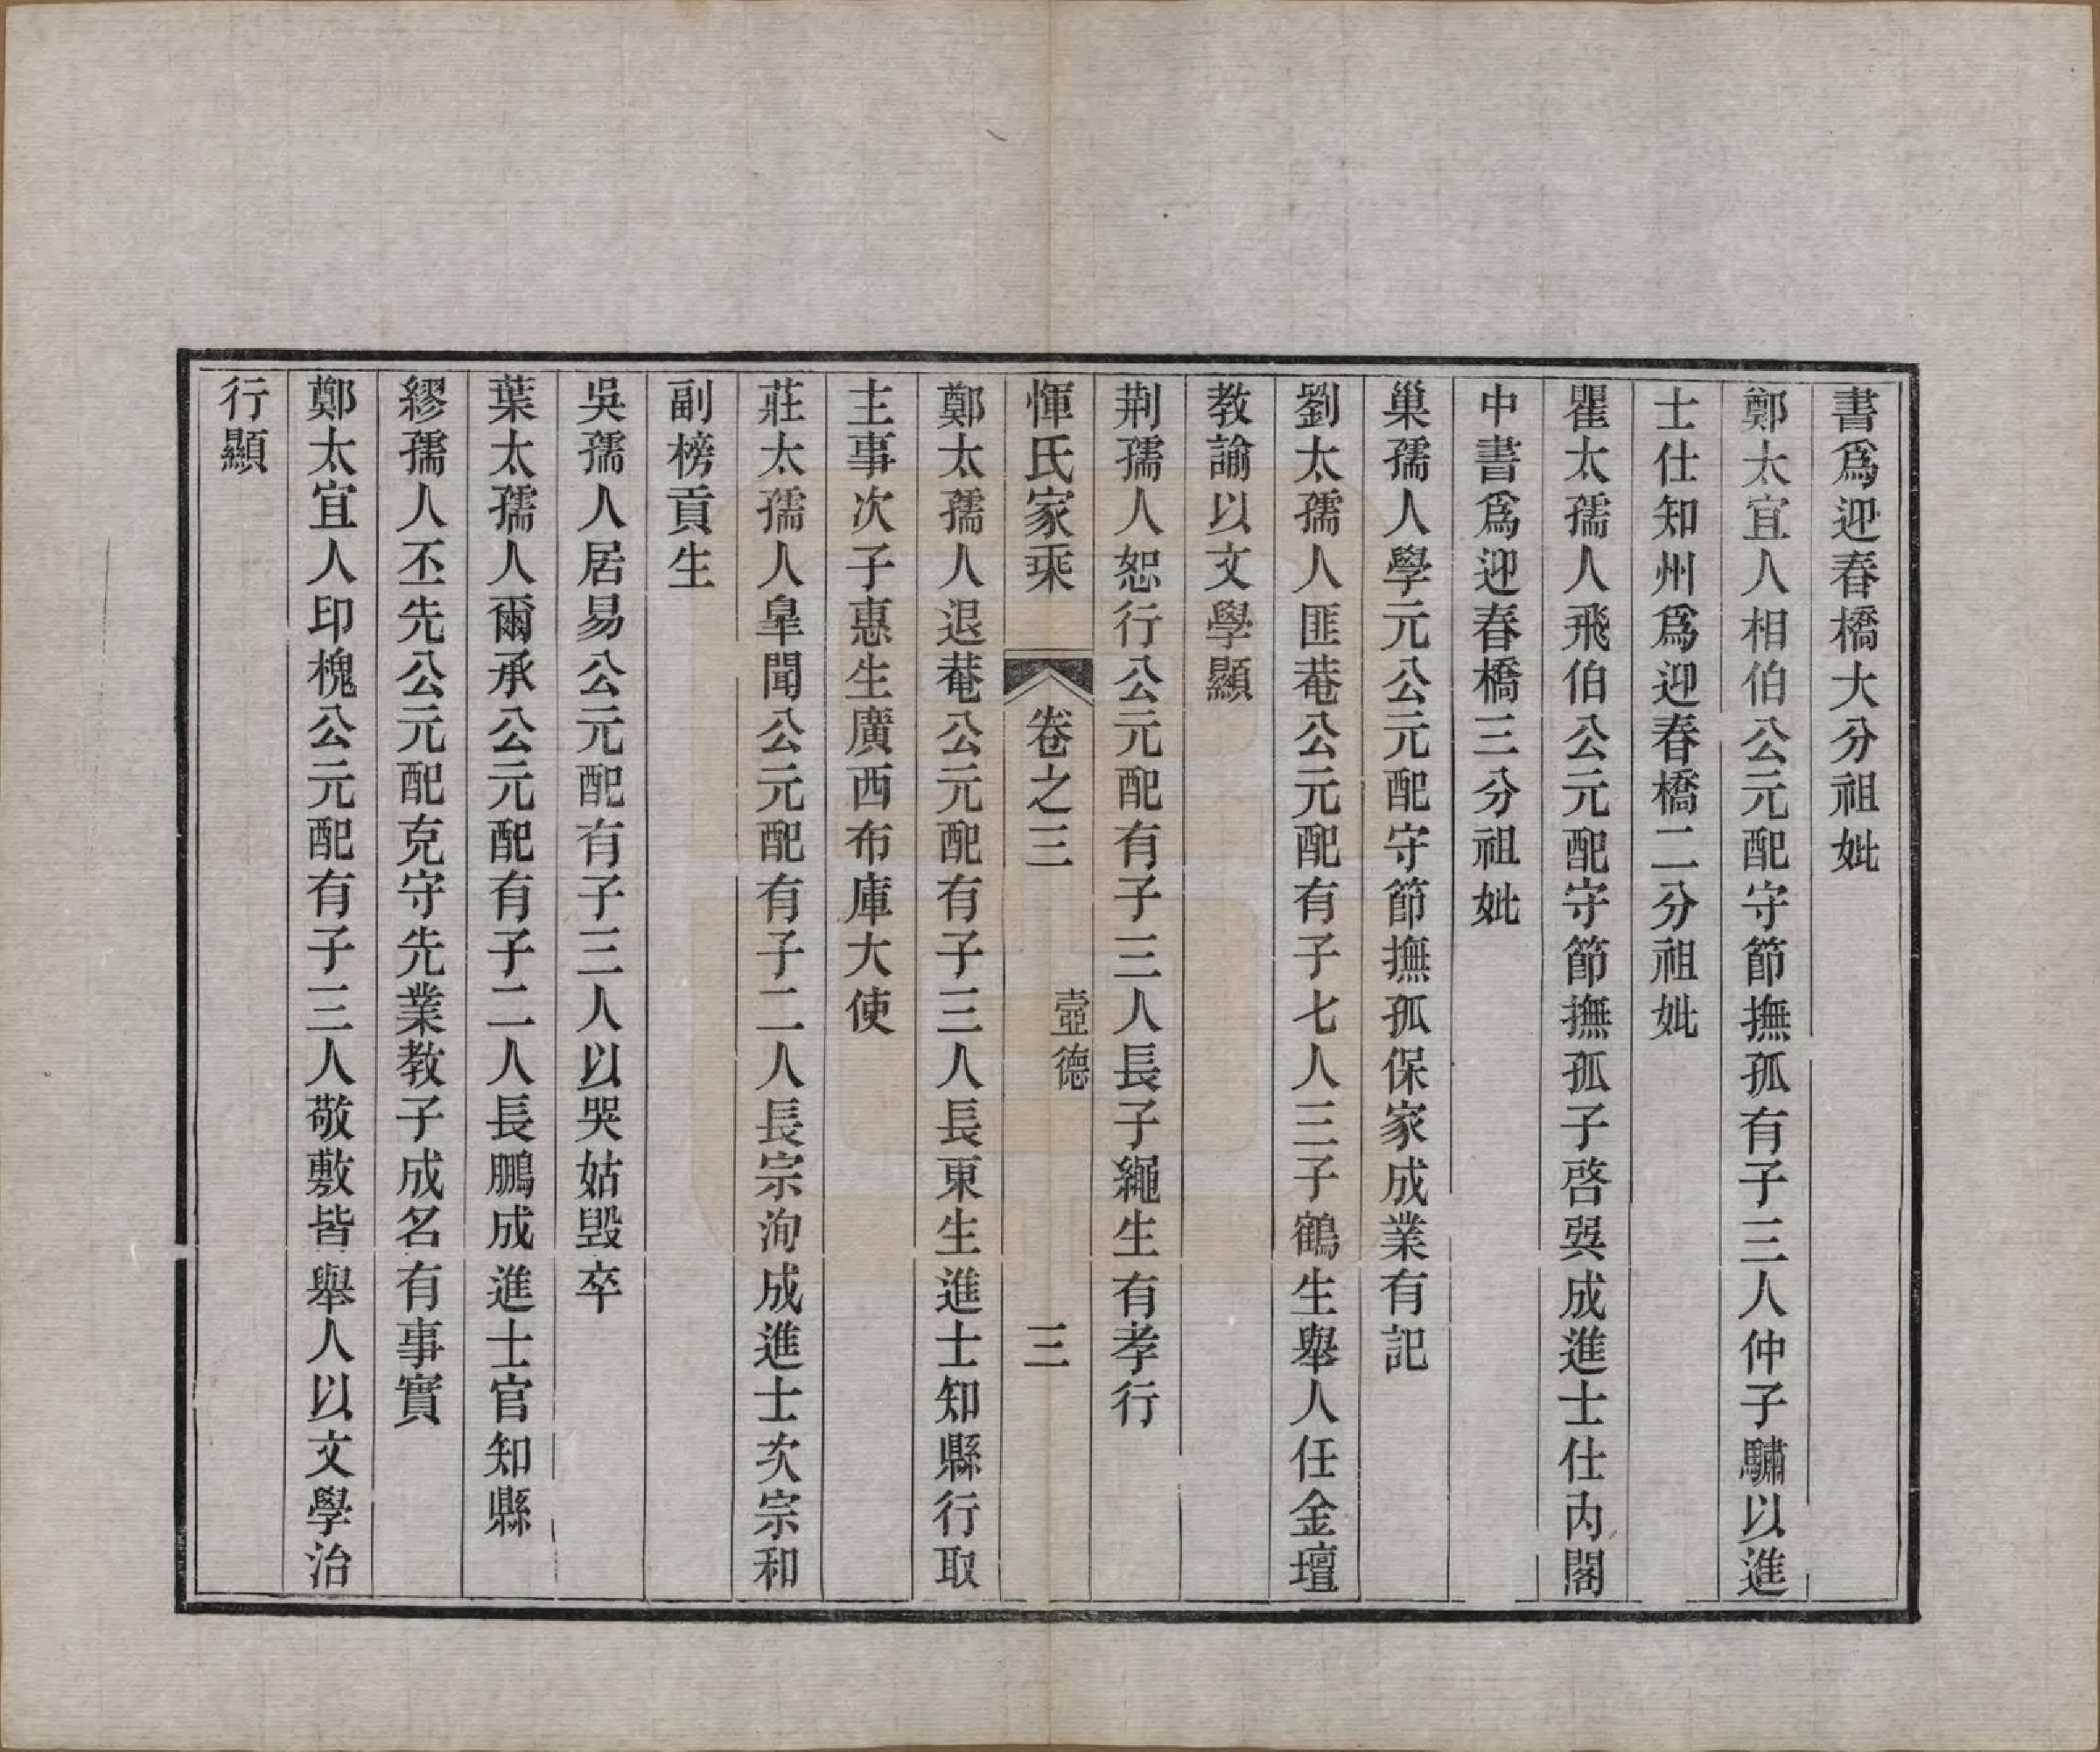 書爲迎春橋大分祖妣
鄭太宜人相伯公元配守節撫孤有子三人仲子驌以進
士仕知州爲迎春橋二分祖妣
瞿太孺人飛伯公元配守節撫孤子啓巽成進士仕內閣
中書爲迎春橋三分祖妣
巢孺人學元公元配守節撫孤保家成業有記
劉太孺人匪菴公元配有子七人三子鶴生舉人任金壇
教諭以文學顯
荆孺人恕行公元配有子三人長子繩生有孝行
惲氏家乘 卷之三 壼德 三
鄭太孺人退菴公元配有子三人長東生進士知縣行取
主事次子惠生廣西布庫大使
莊太孺人臯聞公元配有子二人長宗洵成進士次宗和
副榜貢生
吳孺人居易公元配有子三人以哭姑毁卒
葉太孺人爾承公元配有子二人長鵬成進士官知縣
繆孺人丕先公元配克守先業教子成名有事實
鄭太宜人印槐公元配有子三人敬敷皆舉人以文學治
行顯